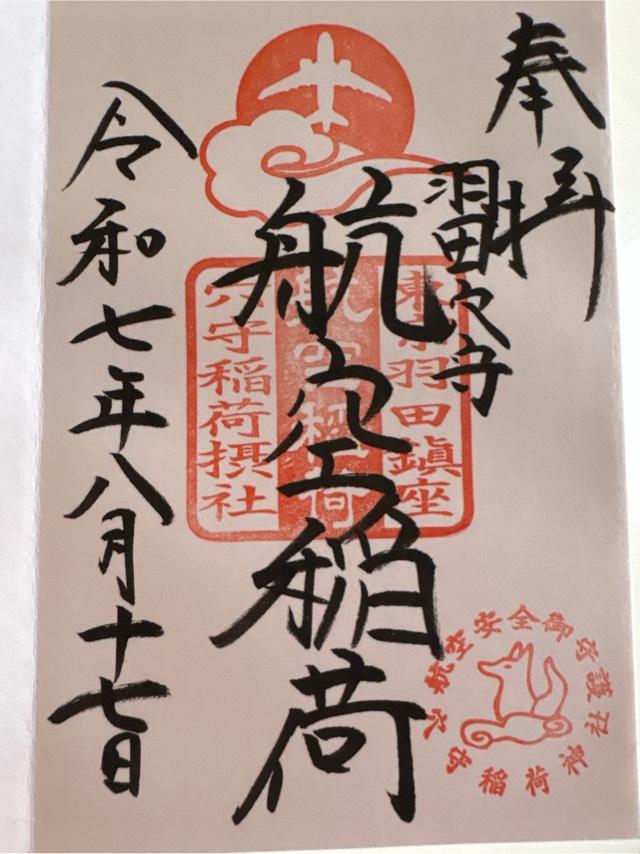 奉拝
羽田穴守
航空稲荷
令和七年八月十七日
東京羽田鎮座
航空稲荷
穴守稲荷摂社
航空安全御守護社
穴守稲荷神